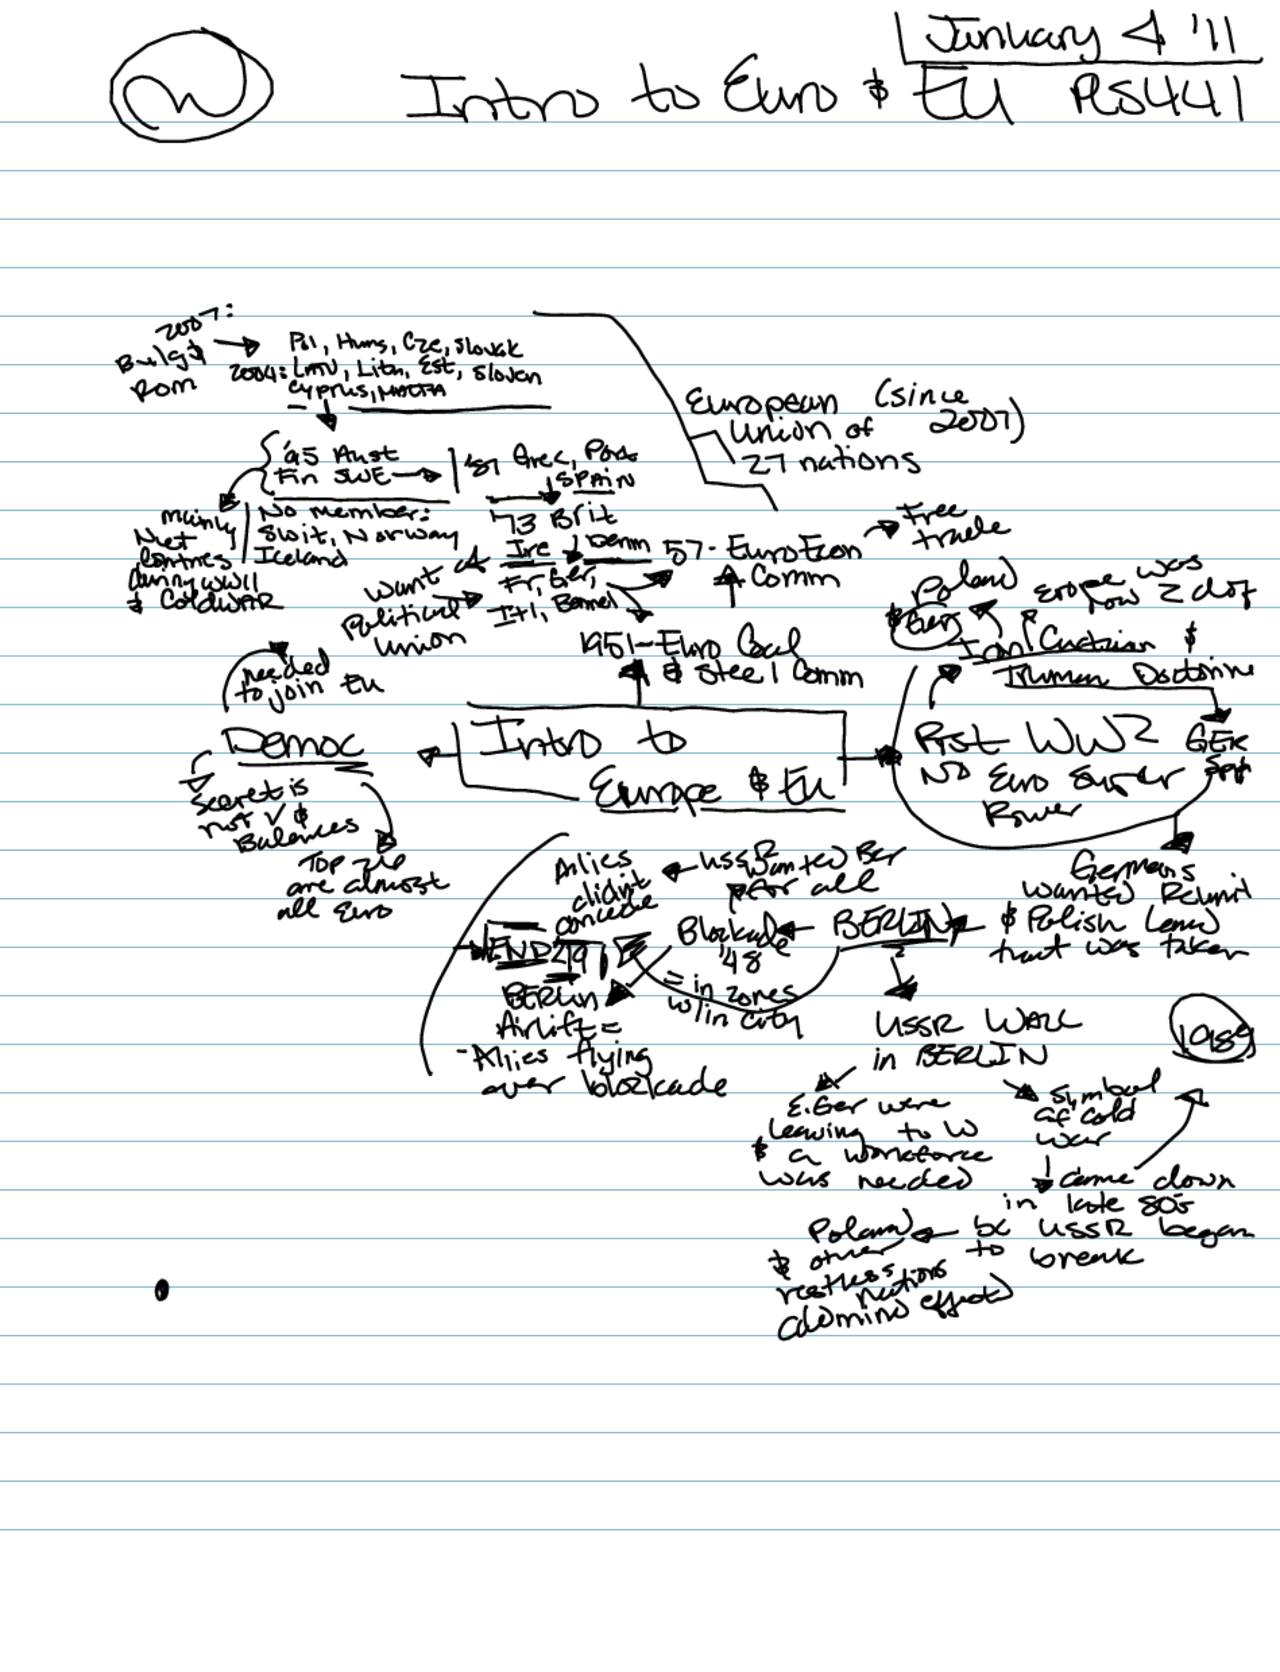 January 4 '11
Intro to Euro & EU PLS441
2007:
Bulg &
Rom
Pol, Hung, Cze, Slovak
2004: Latv, Lith, Est, Sloven
Cyprus, MALTA
European (since
Union of 2007)
27 nations
'95 Aust
Fin SWE
'87 Grec, Port
SPAIN
mainly
Neut
Contries
during WWII
& ColdWAR
No member:
Swit, Norway
Iceland
'73 Brit
Ire Denm
Fr, Ger,
Itl, Bennel
want
Political
Union
57 - Euro Econ
Comm
Free
trade
1951 - Euro Coal
& Steel Comm
Poland
& Ger
Europe was
now 2 diff
Iron Curtain &
Truman Doctorine
needed
to join EU
Democ
Secret is
not ✓ &
Balances
Top
are almost
all Euro
Intro to
Europe & EU
Post WW2
No Euro Super
Power
GER
Split
Germans
wanted Reunif
& Polish Land
that was taken
Allies
didn't
concede
USSR
wanted Ber
for all
Blockade
'48
BERLIN
END
BERLIN
Airlift =
- Allies flying
over blockade
= in zones
w/in city
USSR WALL
in BERLIN
1989
E. Ger were
leaving to W
& a workforce
was needed
Symbol
of cold
war
came down
in late 80s
bc USSR began
to break
Poland
& other
restless
nations
(domino effect)